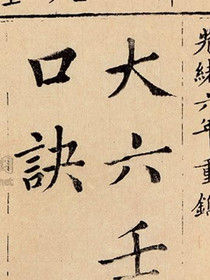 光緒六年重鐫
大六壬
口訣